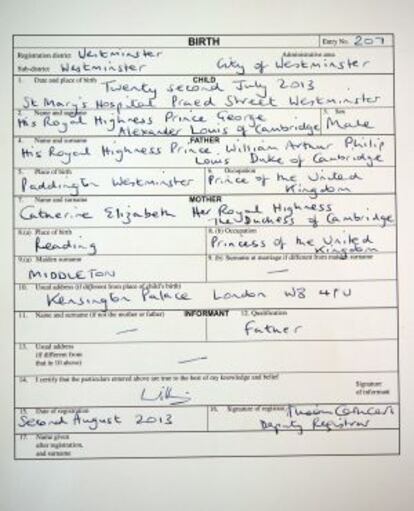 BIRTH Entry No. 207
Registration district Westminster Administrative area
Sub-district Westminster City of Westminster
1. Date and place of birth CHILD
Twenty second July 2013
St Mary's Hospital Praed Street Westminster
2. Name and surname 3. Sex
His Royal Highness Prince George
Alexander Louis of Cambridge Male
4. Name and surname FATHER
His Royal Highness Prince William Arthur Philip
Louis Duke of Cambridge
5. Place of birth 6. Occupation
Paddington Westminster Prince of the United
Kingdom
7. Name and surname MOTHER
Catherine Elizabeth Her Royal Highness
The Duchess of Cambridge
8.(a) Place of birth 8.(b) Occupation
Reading Princess of the United
Kingdom
9.(a) Maiden surname 9.(b) Surname at marriage if different from maiden surname
MIDDLETON —
10. Usual address (if different from place of child's birth)
Kensington Palace London W8 4PU
11. Name and surname (if not the mother or father) INFORMANT 12. Qualification
— Father
13. Usual address
(if different from
that in 10 above) —
14. I certify that the particulars entered above are true to the best of my knowledge and belief
Signature
of informant
15. Date of registration 16. Signature of registrar
Second August 2013 Deputy Registrar
17. Name given
after registration,
and surname